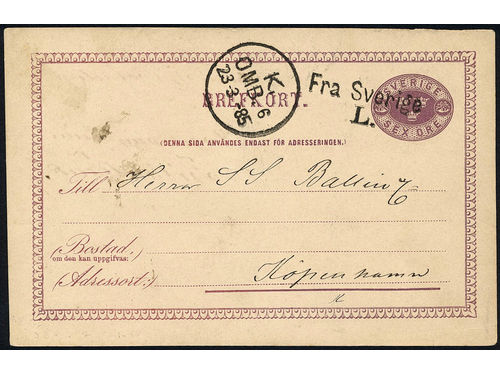 K
OMB. 6
23.3.85
Fra Sverige
L.
SVERIGE
SEX ÖRE
BREFKORT.
(DENNA SIDA ANVÄNDES ENDAST FÖR ADRESSERINGEN.)
Till Herrer S S Balling
(Bostad,
om den kan uppgifvas:)
(Adressort:) Köpenhamn